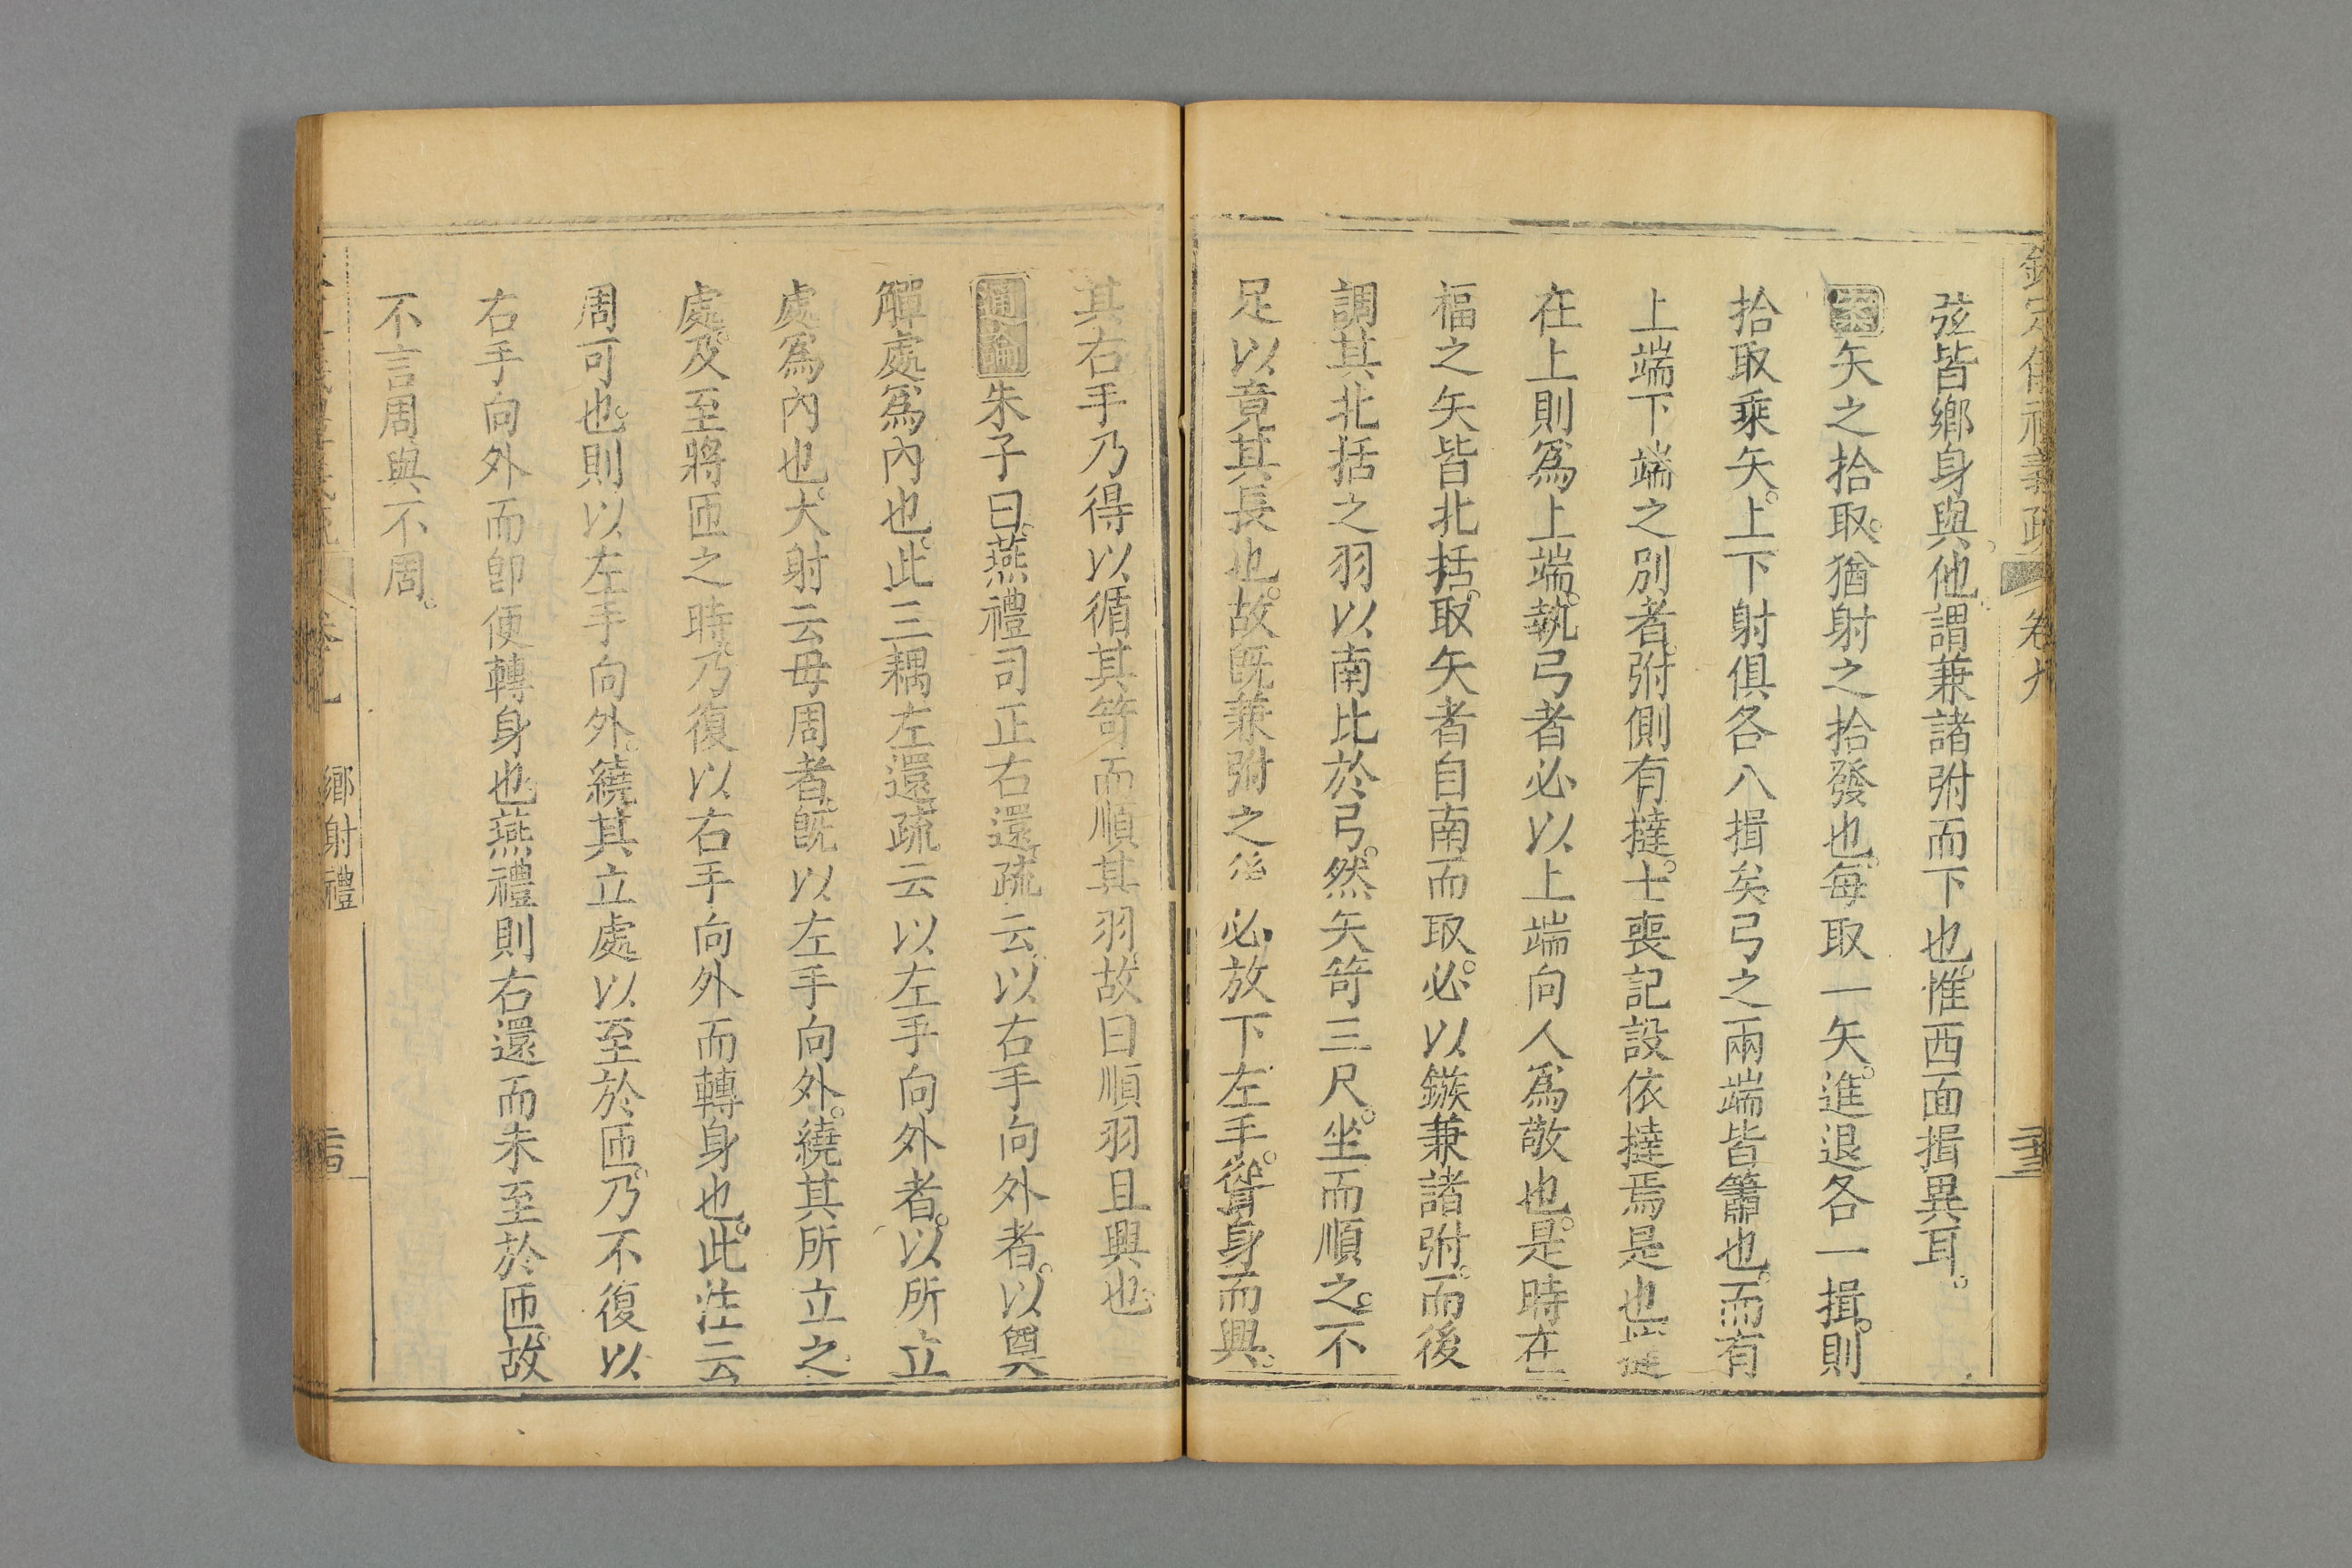 欽定儀禮義疏 卷九
弦皆鄉身與他謂兼諸弣而下也惟西面揖異耳
案矢之拾取猶射之拾發也每取一矢進退各一揖則
拾取乘矢上下射俱各八揖矣弓之兩端皆簫也而有
上端下端之別者弣側有撻士喪記設依撻焉是也
在上則爲上端執弓者必以上端向人爲敬也是時在
福之矢皆北括取矢者自南而取必以鏃兼諸弣而後
調其北括之羽以南比於弓然矢笴三尺坐而順之不
足以竟其長也故既兼弣之後必放下左手從身而興
其右手乃得以循其笴而順其羽故曰順羽且興也
通論朱子曰燕禮司正右還疏云以右手向外者以奠
觶處爲內也此三耦左還疏云以左手向外者以所立
處爲內也大射云毋周者既以左手向外繞其所立之
處及至將匝之時乃復以右手向外而轉身也此注云
周可也則以左手向外繞其立處以至於匝乃不復以
右手向外而卽便轉身也燕禮則右還而未至於匝故
不言周與不周
鄉射禮